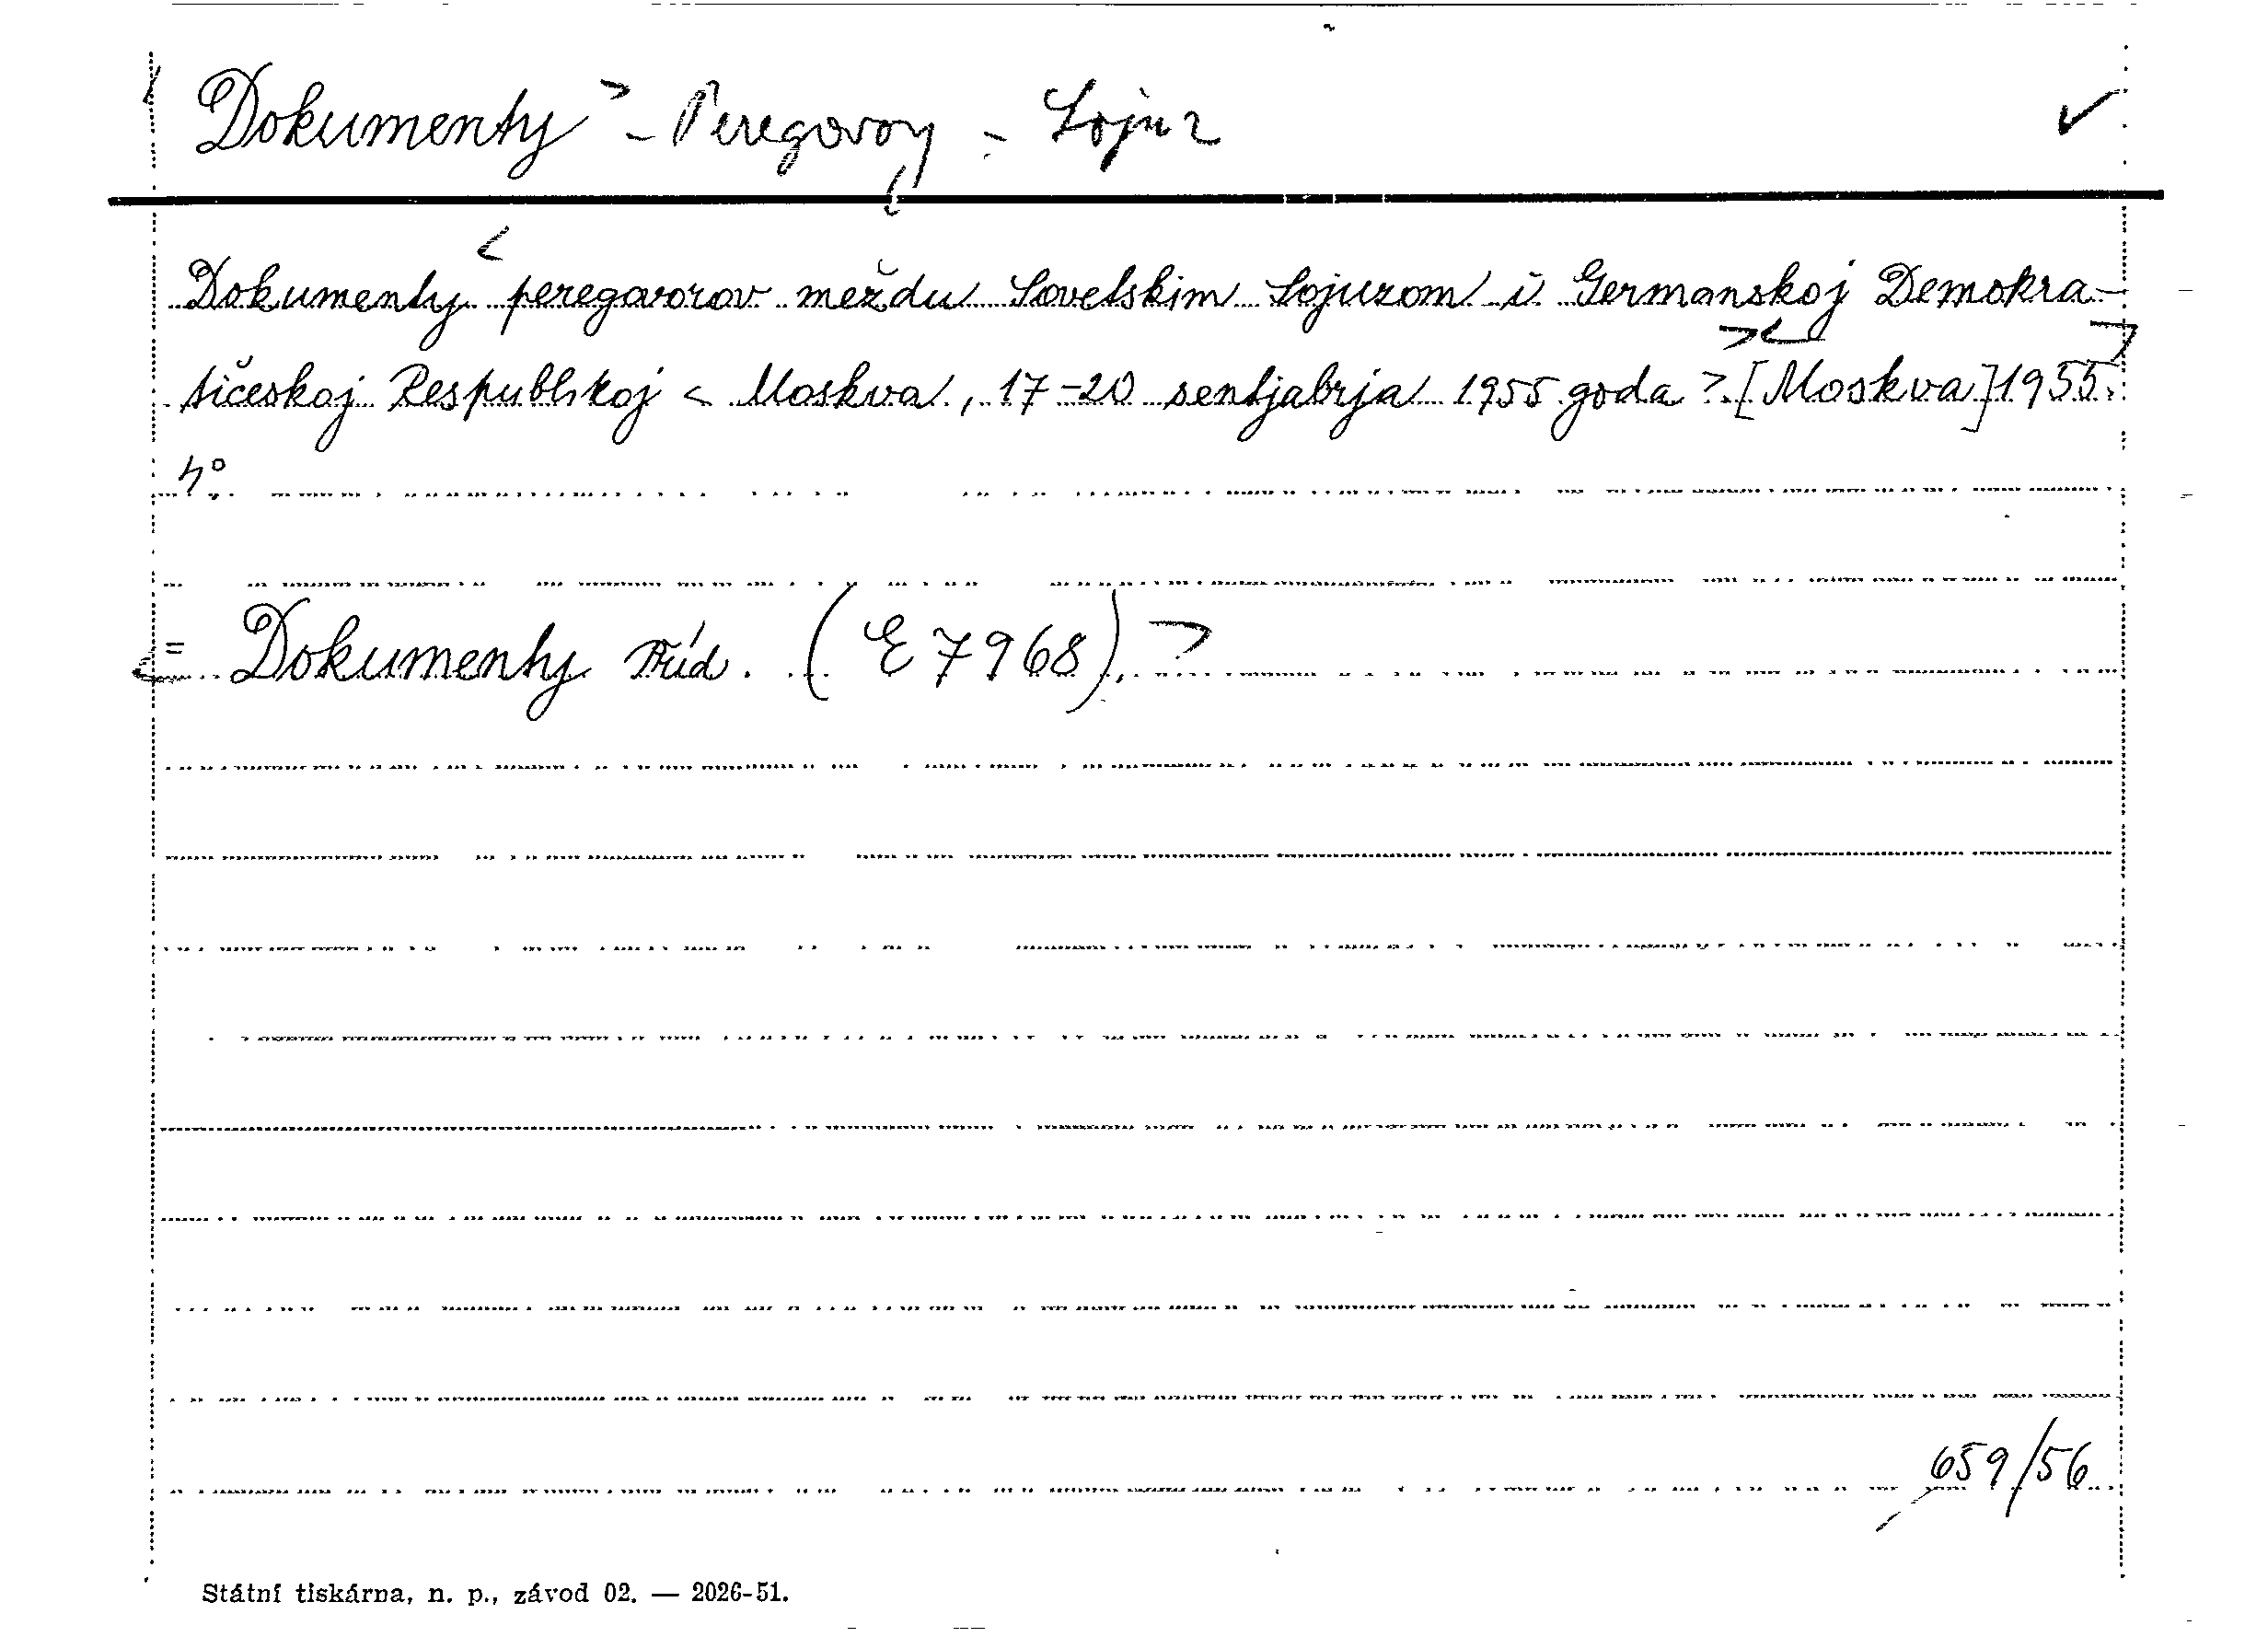 Dokumenty > - Peregovory - Sojuz ✓
Dokumenty < peregovorov meždu Sovetskim Sojuzom i Germanskoj Demokra-
tičeskoj Respublikoj < Moskva, 17-20 sentjabrja 1955 goda >. [Moskva] 1955.
4°
= Dokumenty říd. (E 7968).
659/56
Státní tiskárna, n. p., závod 02. — 2026-51.